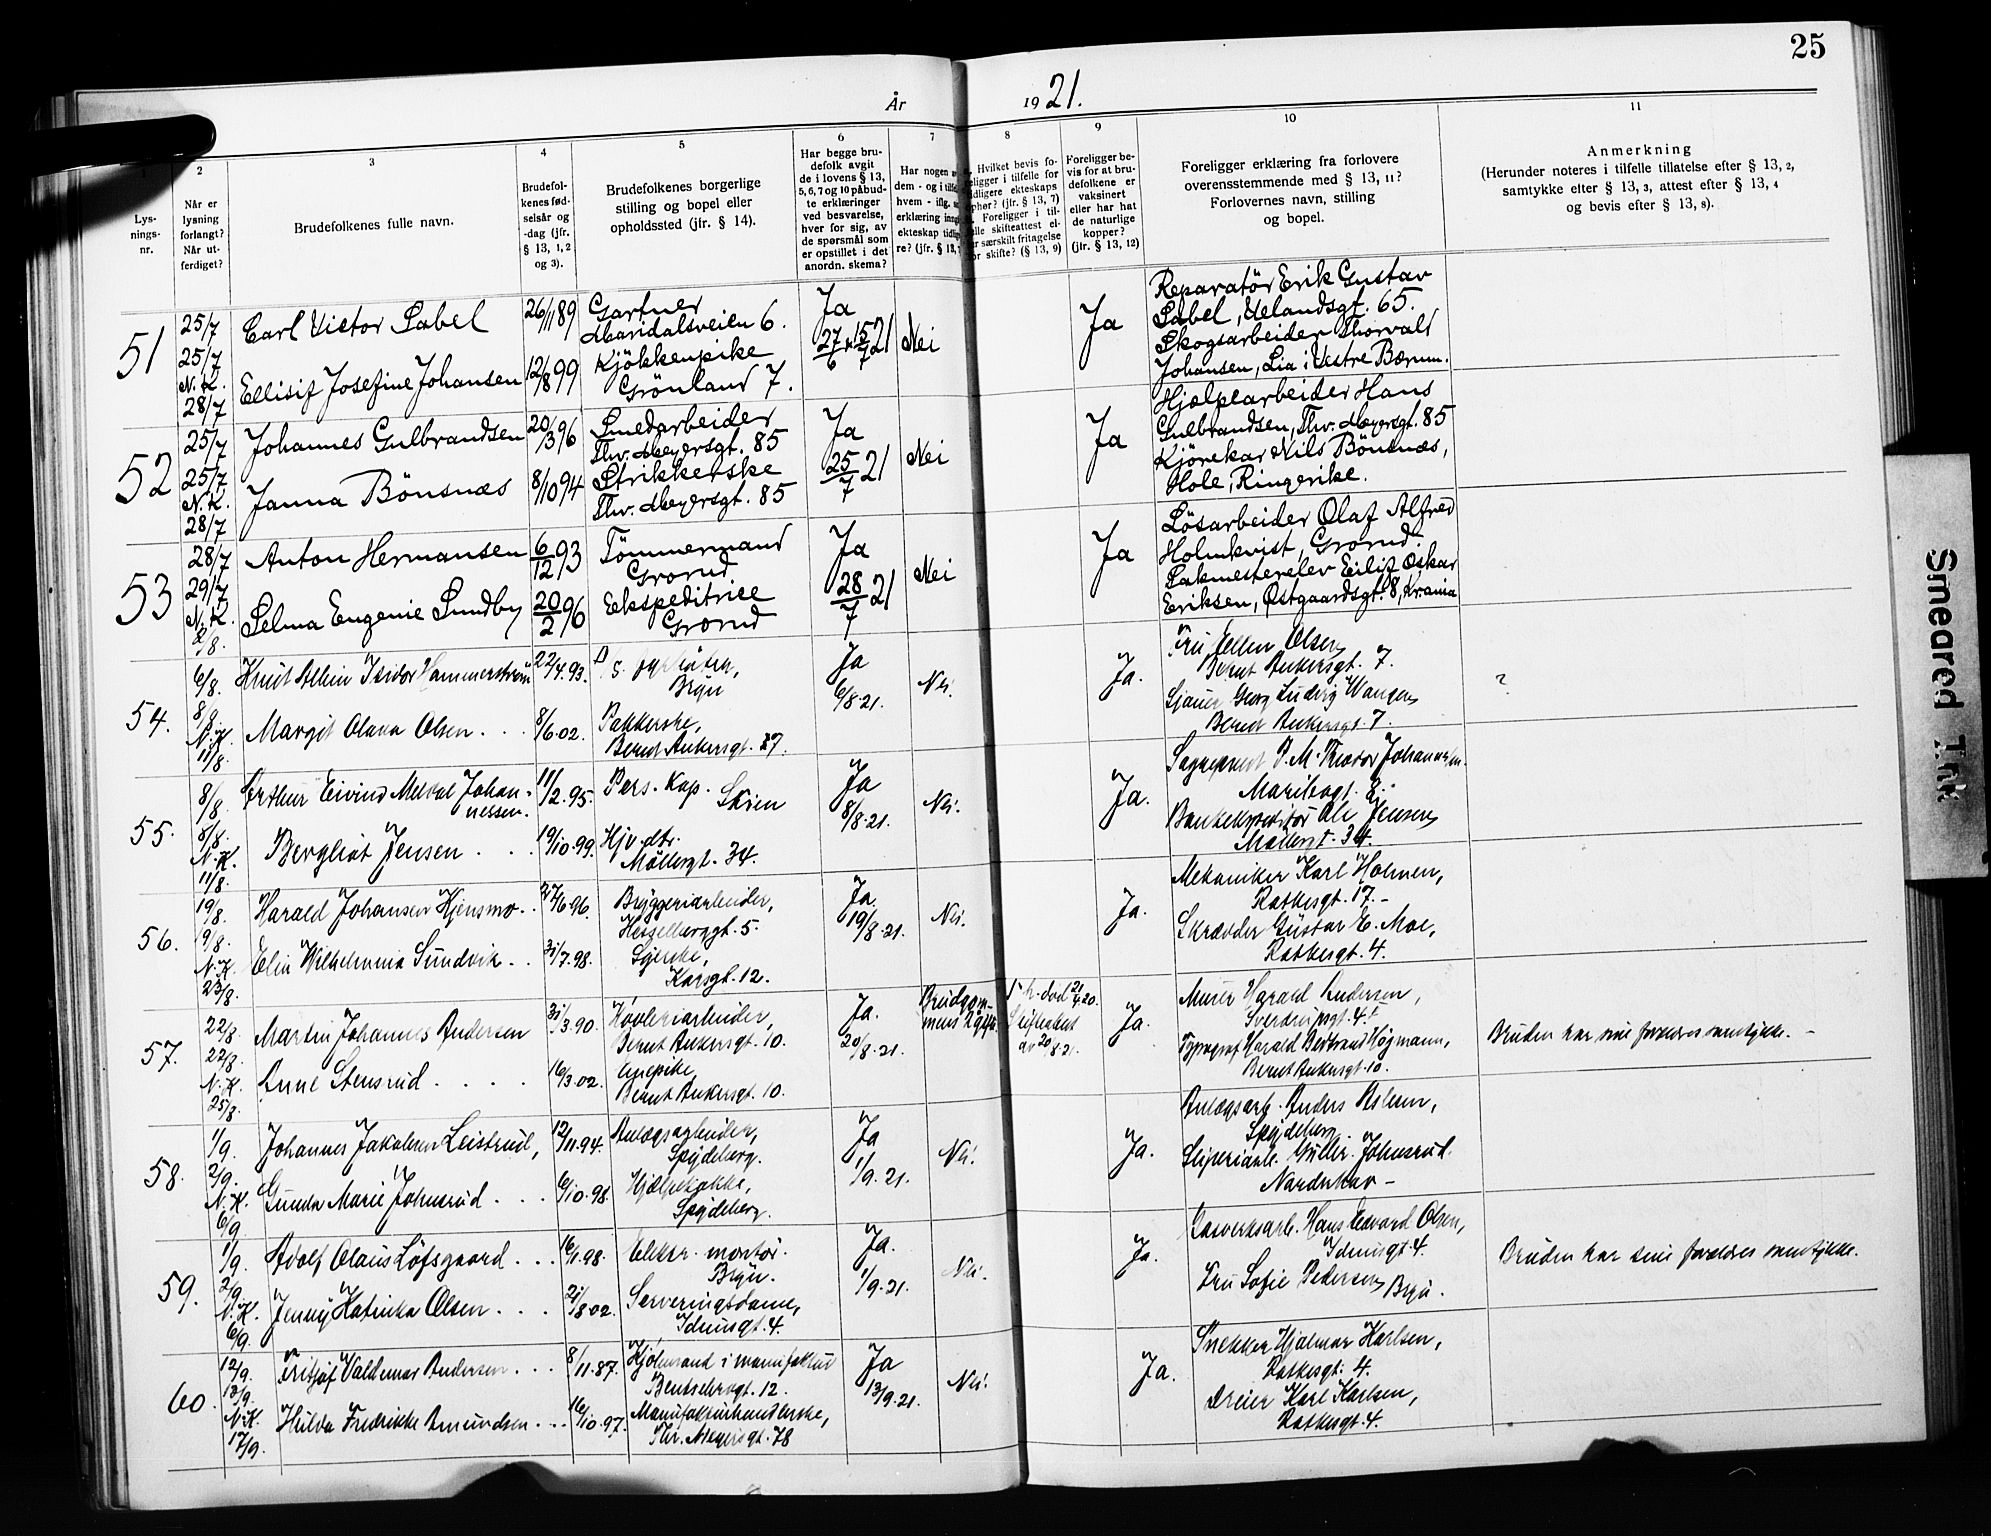 25
År
1921.
1
2
3
4
5
6
7
8
9
10
11
Lys-
nings-
nr.
Når er
lysning
forlangt?
Når ut-
ferdiget?
Brudefolkenes fulle navn.
Brudefol-
kenes fød-
selsår og
-dag (jfr.
§ 13, 1, 2
og 3).
Brudefolkenes borgerlige
stilling og bopel eller
opholdssted (jfr. § 14).
Har begge bru-
defolk avgit
de i lovens § 13,
5, 6, 7 og 10 påbud-
te erklæringer
ved besvarelse,
hver for sig, av
de spørsmål som
er opstillet i det
anordn. skema?
Har nogen
dem - og i tilfe
hvem - iflg.
erklæring inng
ekteskap tidlig
re? (jfr. § 13,
Hvilket bevis fo-
eligger i tilfelle for
idligere ekteskaps
phør? (jfr. § 13, 7)
Foreligger i til-
lle skifteattest el-
r særskilt fritagelse
or skifte? (§ 13, 9)
Foreligger be-
vis for at bru-
defolkene er
vaksinert
eller har hat
de naturlige
kopper?
(jfr. § 13, 12)
Foreligger erklæring fra forlovere
overensstemmende med § 13, 11?
Forlovernes navn, stilling
og bopel.
Anmerkning
(Herunder noteres i tilfelle tillatelse efter § 13, 2,
samtykke efter § 13, 3, attest efter § 13, 4
og bevis efter § 13, 8).
51
25/7
25/7
N. K.
28/7
Carl Victor Sabel
Ellisif Josefine Johansen
26/11 89
12/8 99
Gartner
Maridalsveien 6.
Kjökkenpike
Grönland 7.
Ja
27/6 15/7 21
Nei
Ja
Reparatör Erik Gustav
Sabel, Uelandsgt. 65.
Skogsarbeider Thorvald
Johansen, Lia i Vestre Bærum.
52
25/7
25/7
N. K.
28/7
Johannes Gulbrandsen
Janna Bönsnæs
20/3 96
8/10 94
Smedarbeider
Thv. Meyersgt. 85
Strikkerske
Thv. Meyersgt. 85
Ja
25/7 21
Nei
Ja
Hjælpearbeider Hans
Gulbrandsen, Thv. Meyersgt. 85
Kjörekar Nils Bönsnæs,
Hole, Ringerike.
53
28/7
29/7
N. K.
2/8.
Anton Hermansen
Selma Eugenie Sundby
6/12 93
20/2 96
Tömmermand
Grorud
Ekspeditrice
Grorud
Ja
28/7 21
Nei
Ja
Lösarbeider Olaf Alfred
Holmkvist, Grorud.
Lakmesterelev Eilif Oskar
Eriksen, Østgaardsgt. 8, Kr.ania
54.
6/8.
8/8.
N. K.
11/8.
Knut Albin Isidor Hammerström
Margit Olava Olsen . . .
22/4. 93.
8/6. 02.
Bryn
Pakkerske,
Bernt Ankersgt. 7.
Ja
6/8. 21.
Nei.
Ja.
Fru Ellen Olsen,
Bernt Ankersgt. 7.
Sjauer Georg Ludvig Wangen,
Bernt Ankersgt. 7.
?
55.
8/8.
8/8.
N. K.
11/8.
Arthur Eivind Melval Johan-
nessen.
Bergliot Jensen . . .
11/2. 95.
19/10. 99.
Pers. Kap. Skien
Hjv. dtr.
Möllergt. 34.
Ja
8/8. 21.
Nei.
Ja.
P. M. Theodor Johannessen.
Maribogt. 8.
Bankekspeditör Ole Jensen,
Möllergt. 34.
56.
19/8.
19/8.
N. K.
23/8.
Harald Johansen Hjensmo . .
Elin Wilhelmina Sundvik . .
27/6. 96.
31/7. 98.
Bryggeriarbeider,
Hesselberggt. 5.
Syerske,
Korsgt. 12.
Ja.
19/8. 21.
Nei.
Ja.
Mekaniker Karl Holmen,
Ratkesgt. 17. -
Skrædder Gustav E. Moe,
Ratkesgt. 4.
57.
22/8.
22/8.
N. K.
25/8.
Martin Johannes Andersen
Anne Stensrud . . . .
31/3. 90.
16/3. 02.
Høvleriarbeider,
Bernt Ankersgt. 10.
Bernt Ankersgt. 10.
Ja.
20/8. 21.
Brudgom-
mens 2det
død 21/4 20.
Skifteattest
av 20/8. 21.
Ja.
Murer Harald Andersen,
Sverdrupsgt. 4.
Typograf Harald Bertrand Högmann,
Bernt Ankersgt. 10.
Bruden har sine foreldres samtykke. -
58.
1/9.
2/9.
N. K.
6/9
Johannes Jakobsen Leistrud,
Gunda Marie Johnsrud . . .
12/11. 94.
6/10. 98.
Anlægsarbeider,
Spydeberg.
Hjælpekokke,
Spydeberg.
Ja
1/9. 21.
Nei.
Ja.
Anlægsarb. Anders Aslesen,
Spydeberg.
Sliperiarb. Guttor. Johnsrud.
Narderhav -
59.
1/9.
2/9.
N. K.
6/9.
Adolf Olaus Löfsgaard . . .
Jenny Katinka Olsen . . .
16/1. 98.
21/8 02.
Elektr. montör.
Bryn.
Serveringsdame,
Idunsgt. 4.
Ja.
1/9. 21.
Nei.
Ja.
Gasverksarb. Hans Edvard Olsen,
Idunsgt. 4.
Fru Sofie Pedersen, Bryn.
Bruden har sine foreldres samtykke.
60.
12/9.
13/9.
N. K.
17/9.
Fritjof Valdemar Andersen . . .
Hilda Fredrikke Amundsen . . .
8/11. 87.
16/10. 97.
Kjöbmand i manufaktur
Bentsebrogt. 12.
Manufakturhandlerske,
Thv. Meyersgt. 78
Ja
13/9. 21.
Nei.
Ja.
Snekker Hjalmar Karlsen,
Ratkesgt. 4.
Dreier Karl Karlsen,
Ratkesgt. 4.
Smeared Ink